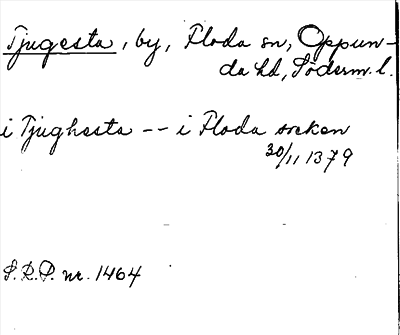 Tjugesta, by, Floda sn, Oppun-
da hd, Söderm. l.
i Tjughesta -- i Floda soken
30/11 1379
S.R.P. nr. 1464